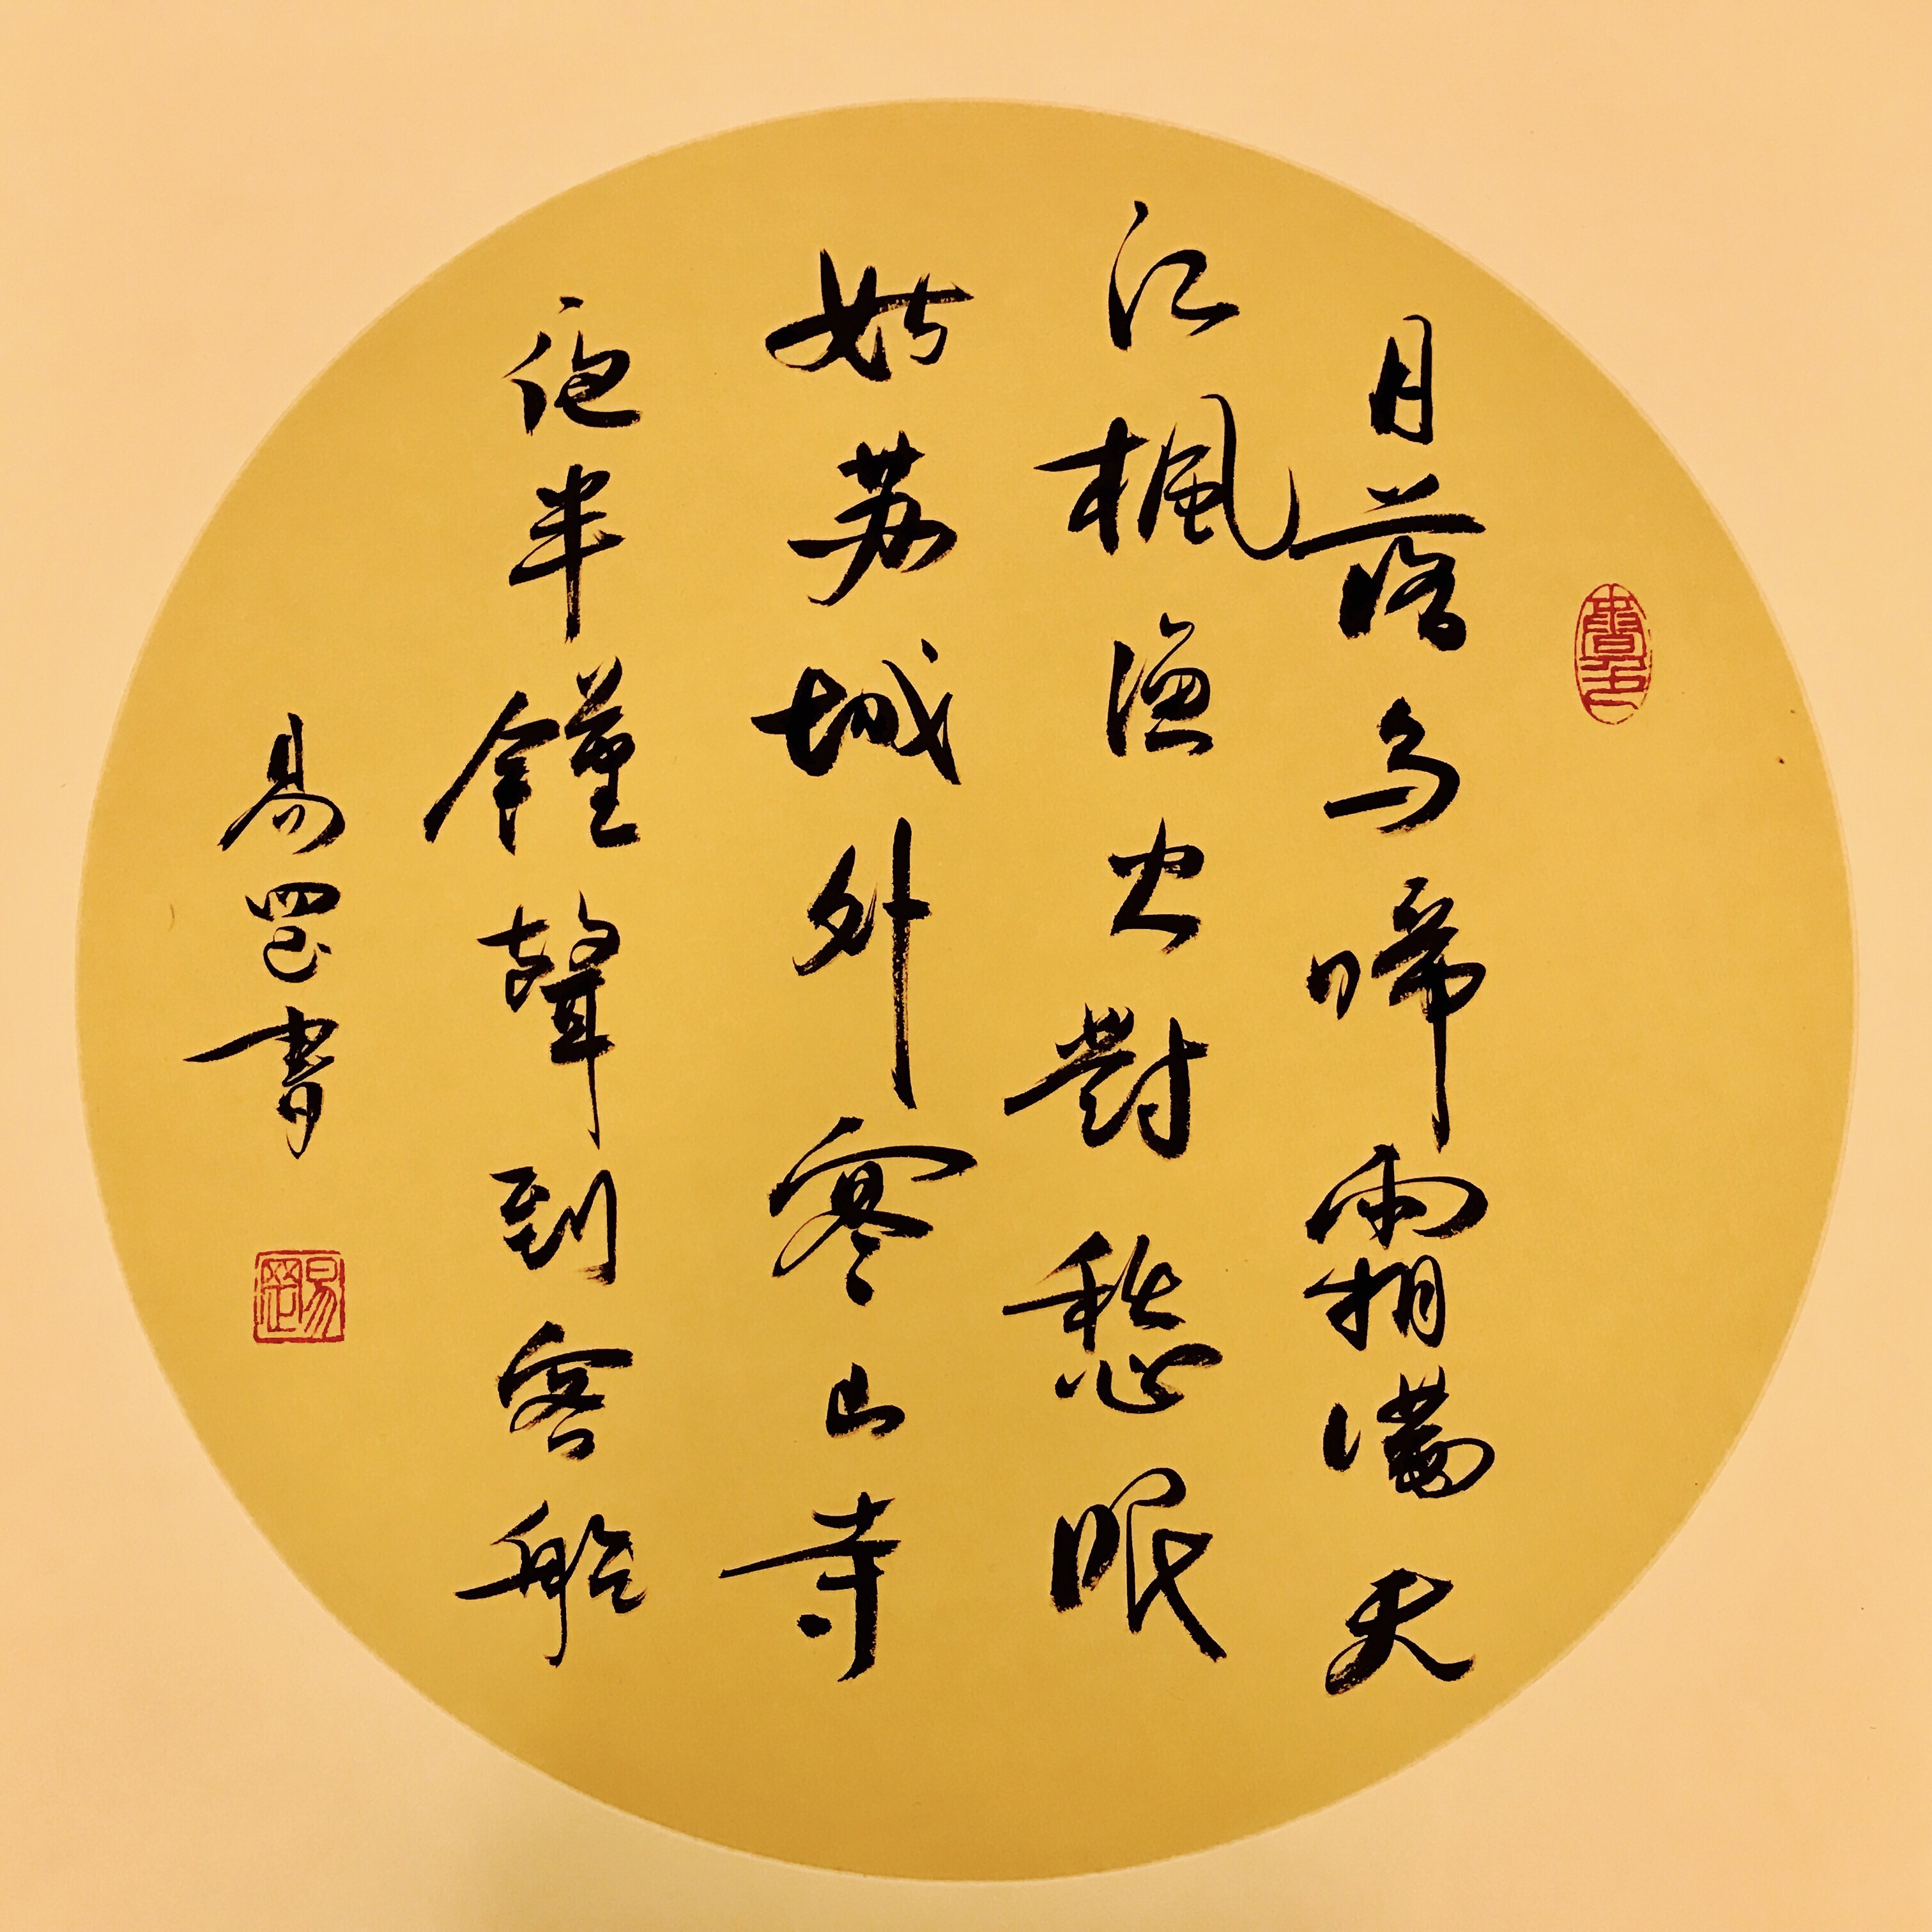 月落烏啼霜滿天
江楓漁火對愁眠
姑苏城外寒山寺
夜半鐘聲到客船
易罡書
易罡